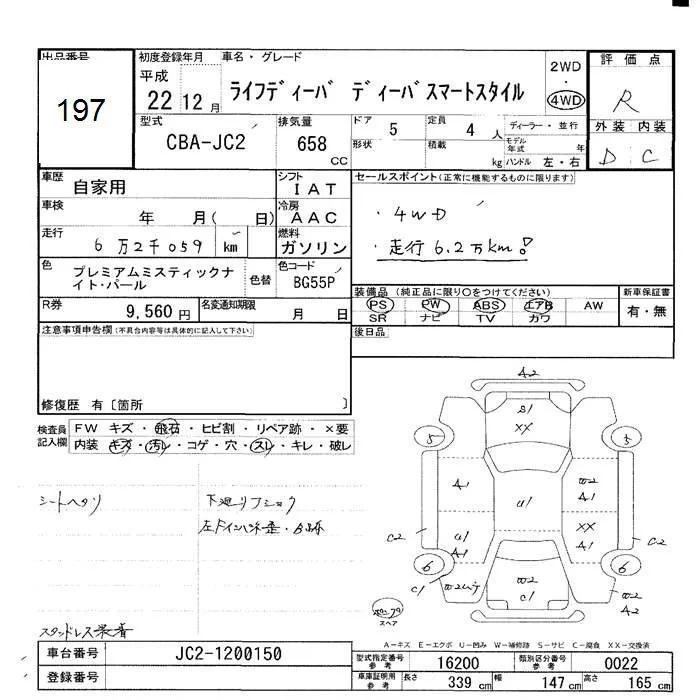 出品番号 初度登録年月 車名・グレード 評価点
197
平成 22 12月 ライフディーバ ディーバスマートスタイル 2WD・4WD R
型式 CBA-JC2 排気量 658 CC ドア 5 定員 4 人 ディーラー・並行 外装 内装
形状 積載 kg モデル年式 年 ハンドル 左・右 D C
車歴 自家用 シフト IAT セールスポイント(正常に機能するものに限ります)
車検 年 月( 日) 冷房 AAC ・4WD
走行 6万2千059 km 燃料 ガソリン ・走行6.2万km!
色 プレミアムミスティックナイト・パール 色替 色コード BG55P
装備品(純正品に限り○をつけてください) 新車保証書
R券 9,560円 名変通知期限 月 日 PS PW ABS エアB AW 有・無
SR ナビ TV カワ
注意事項申告欄(不具合内容等は具体的に記入して下さい) 後日品
修復歴 有〔箇所 〕
検査員記入欄 FW キズ・飛石・ヒビ割・リペア跡・×要
内装 キズ・汚レ・コゲ・穴・スレ・キレ・破レ
シートヘタリ
下廻りフショク
スタッドレス装着
A2
S1
XX
5 5
A1 U1 W2 A1
XX A1
C2 U1 A1 C2
6 6
C1 W2 W2 C1 W2 A2
スペア
A-キズ E-エクボ U-凹み W-補修跡 S-サビ C-腐食 XX-交換済
車台番号 JC2-1200150 型式指定番号 参考 16200 類別区分番号 参考 0022
登録番号 車庫証明用 参考 長さ 339 cm 幅 147 cm 高さ 165 cm